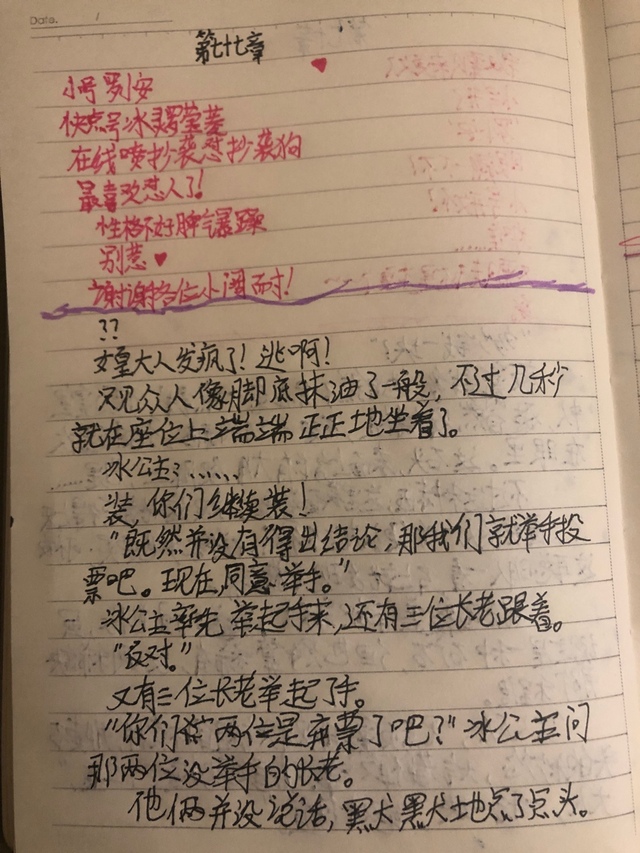 Date. /
第七十七章
小号罗安
快点号冰灵罗莹菱
在线喷抄袭怼抄袭狗
最喜欢怼人了!
性格不好脾气暴躁
别惹♥
谢谢各位小阔耐!
??
女皇大人发疯了!逃啊!
只见众人像脚底抹油了一般,不过几秒
就在座位上端端正正地坐着了。
冰公主:……
装,你们继续装!
“既然并没有得出结论,那我们就举手投
票吧。现在,同意举手。”
冰公主率先举起手来,还有三位长老跟着。
“反对。”
又有三位长老举起了手。
“你们这两位是弃票了吧?”冰公主问
那两位没举手的长老。
他俩并没说话,默默地点了点头。